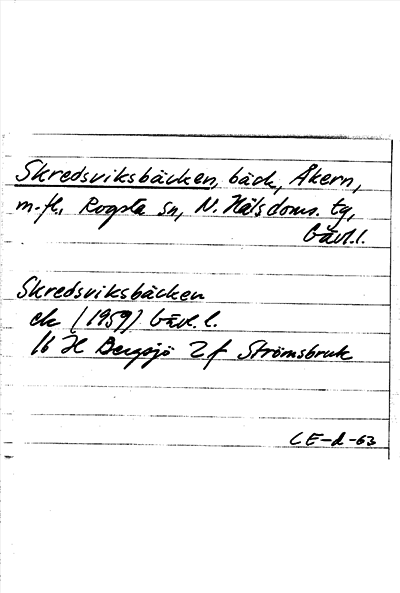 Skredsviksbäcken, bäck, Åkern,
m.fl. Rogsta sn, N. Hälsdoms. tg,
Gävl.l.
Skredsviksbäcken
ek (1959) Gävl. l.
16 H Bergsjö 2 f Strömsbruk
CE-d-63